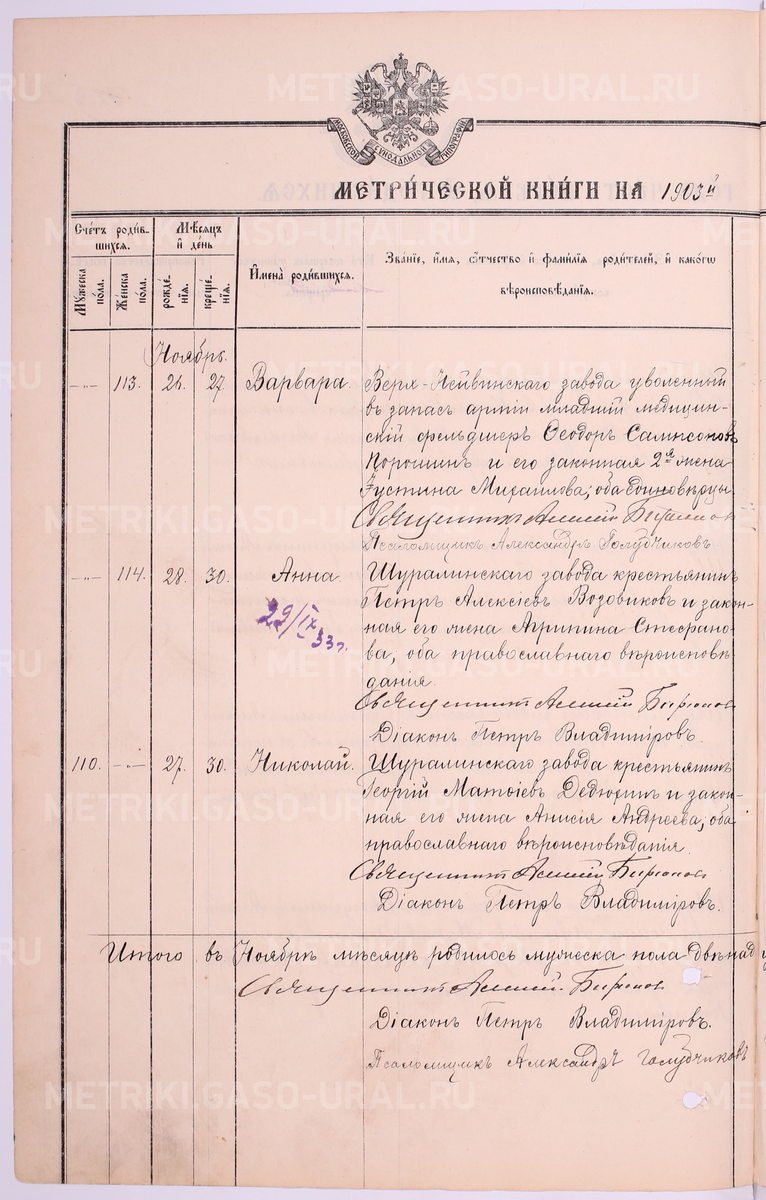 МОСКОВСКОЙ СѴНОДАЛЬНОЙ ТИПОГРАФІИ
МЕТРИ́ЧЕСКОЙ КНИ́ГИ НА 1903й
Счётъ роди́в-
шихся.
Му́жеска
по́ла.
Же́нска
по́ла.
Мѣ́сяцъ
и҆ де́нь
рожде́-
нїѧ.
креще́-
нїѧ.
И҆мена̀ роди́вшихся.
Зва́нїе, и҆́мѧ, ѻ҆́тчество и҆ фами́лїѧ роди́телей, и҆ како́гѡ
вѣроисповѣ́данїѧ.
Ноябрь.
-„- 113. 26. 27 Варвара. Верх-Нейвинскаго завода уволенный
въ запасъ арміи младшій медицин-
скій фельдшеръ Ѳеодоръ Сампсоновъ
Порошинъ и его законная 2я жена
Іустина Михаилова; оба единовѣрцы.
Священникъ Алексій Бирюков
Псаломщикъ Александръ Голубчиковъ
-„- 114. 28. 30. Анна. Шуралинскаго завода крестьянинъ
Петръ Алексіевъ Возовиковъ и закон-
ная его жена Агрипина Стефано-
ва, оба православнаго вѣроисповѣ-
данія.
29/IX 33г.
Священникъ Алексій Бирюков
Діаконъ Петръ Владиміровъ.
110. -„- 27. 30. Николай. Шуралинскаго завода крестьянинъ
Георгій Матѳіевъ Дедюхинъ и закон-
ная его жена Анисія Андреева, оба
православнаго вѣроисповѣданія.
Священникъ Алексій Бирюков
Діаконъ Петръ Владиміровъ.
Итого въ Ноябрѣ мѣсяцѣ родилось мужеска пола двѣнад
Священникъ Алексій Бирюков
Діаконъ Петръ Владиміровъ.
Псаломщикъ Александръ Голубчиковъ
METRIKI.GASO-URAL.RU